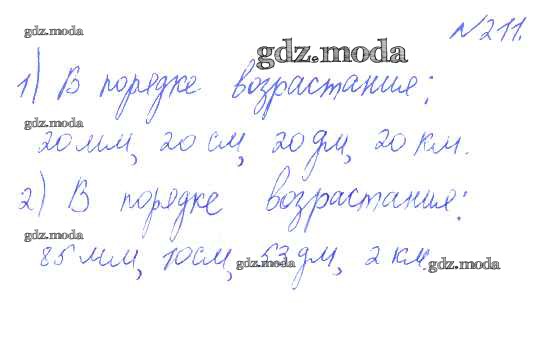 gdz.moda
№ 211.
gdz.moda
1) В порядке возрастания:
gdz.moda
20 мм, 20 см, 20 дм, 20 км.
2) В порядке возрастания:
gdz.moda
85 мм, 10 см, 53 дм, 2 км.
gdz.moda
gdz.moda